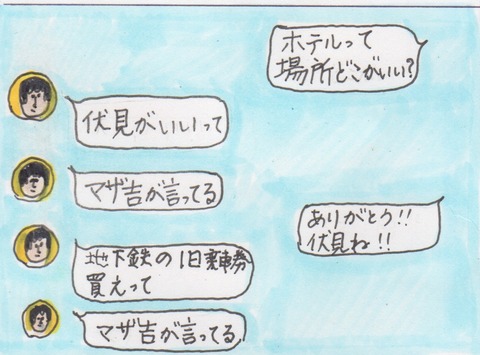 ホテルって
場所どこがいい?
伏見がいいって
マザ吉が言ってる
ありがとう!!
伏見ね!!
地下鉄の1日乗車券
買えって
マザ吉が言ってる